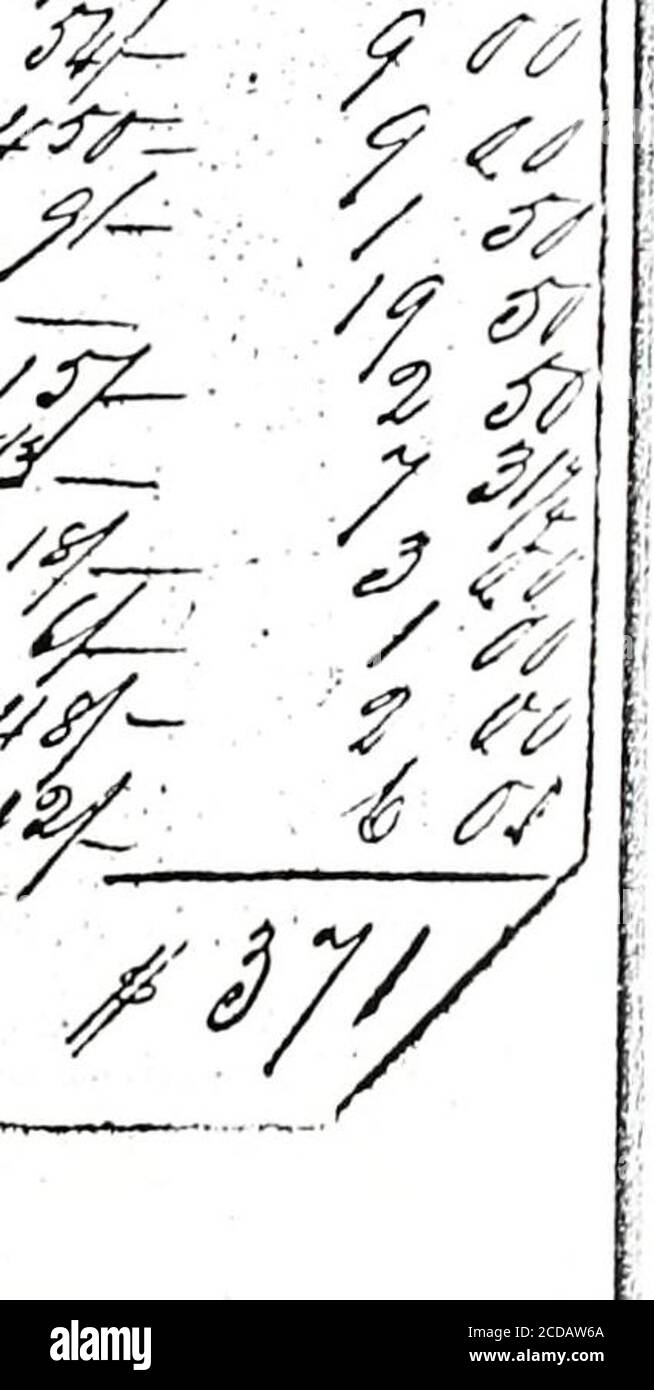 54/- 9 00
450- 9 00
9/- 1 50
— 19 50
15/- 2 50
13 — 7 31 1/4
18/- 3 00
6/- 1 00
48/- 2 00
12/- 6 00
$ 371
alamy
Image ID: 2CDAW6A
www.alamy.com